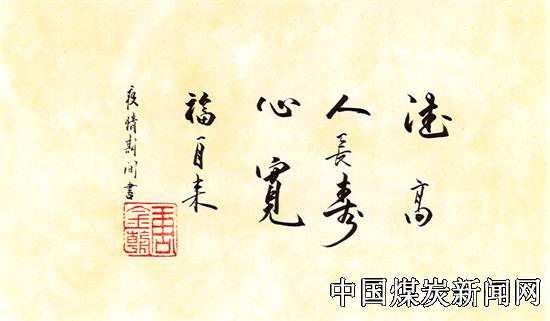 德高
人長壽
心寬
福自来
疫情期间書
中国煤炭新闻网